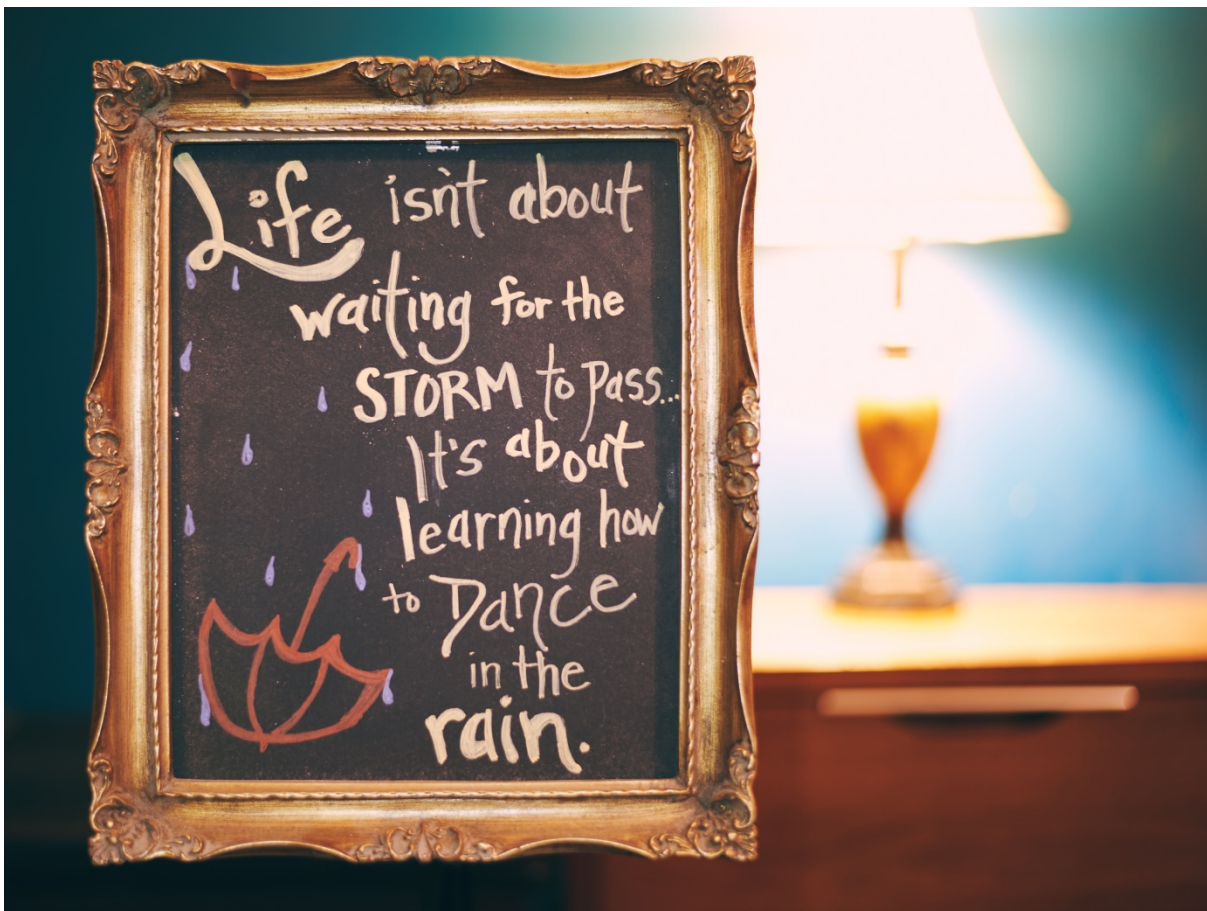 Life isn't about
waiting for the
STORM to pass...
It's about
learning how
to Dance
in the
rain.